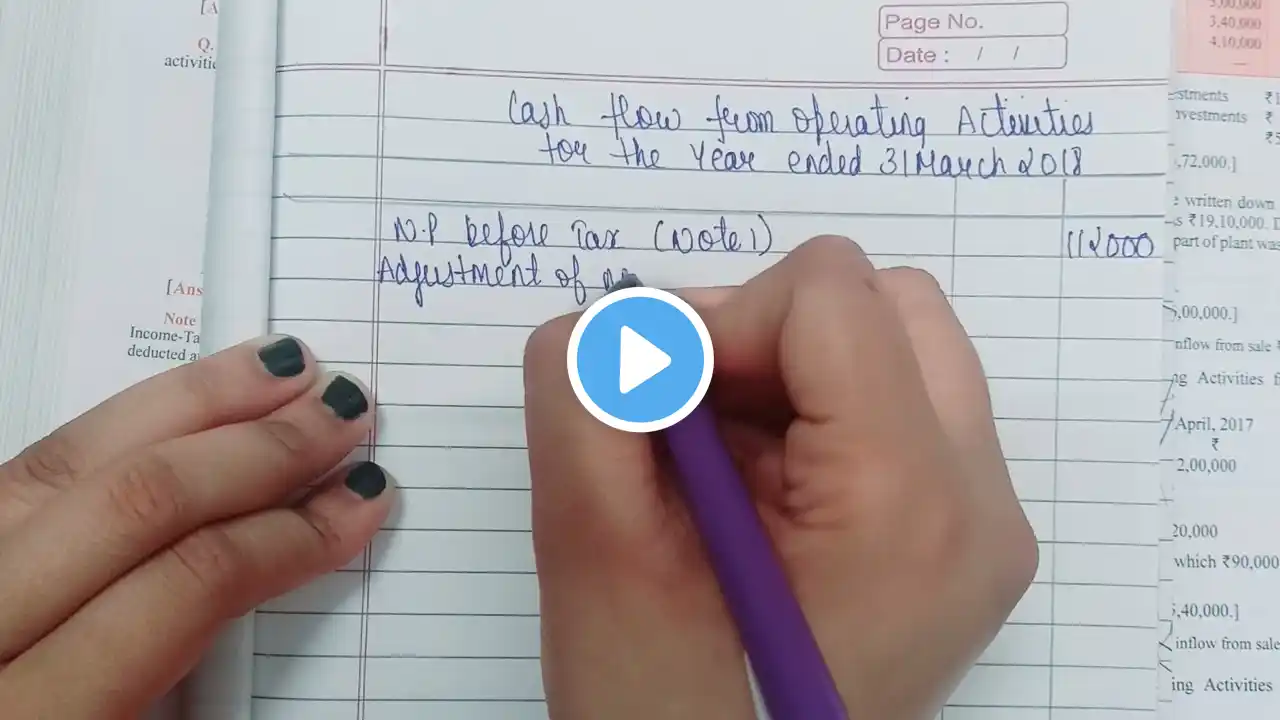 [A
Q.
activitie
[Ans
Note
Income-Ta
deducted a
Page No.
Date : / /
Cash flow from operating Activities
for the Year ended 31 March 2018
N.P before Tax (Note 1) 112000
Adjustment of
3,40,000
4,10,000
estments
nvestments
,72,000.]
e written down
s ₹19,10,000.
part of plant was
5,00,000.]
nflow from sale
ng Activities f
April, 2017
₹
2,00,000
20,000
which ₹90,000
5,40,000.]
inflow from sale
ing Activities